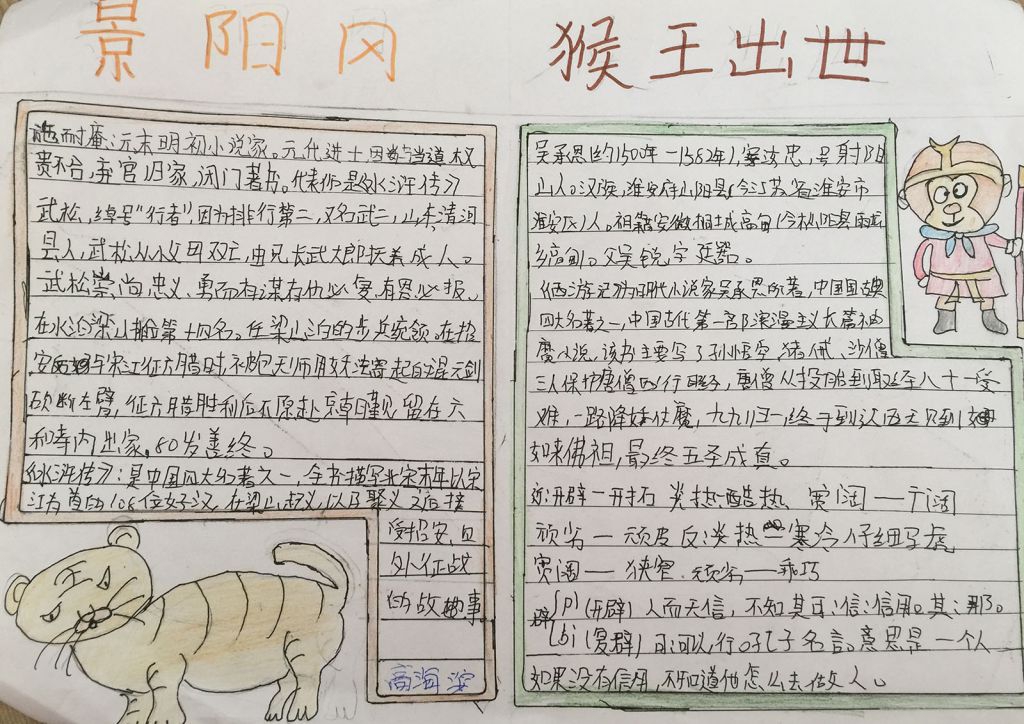 景阳冈
施耐庵:元末明初小说家。元代进士因与当道权
贵不合,弃官归家,闭门著书。代表作是《水浒传》
武松,绰号"行者",因为排行第二,又名武二,山东清河
县人,武松从小父母双亡,由兄长武大郎扶养成人。
武松崇尚忠义、勇而有谋有仇必复、有恩必报。
在水泊梁山排第十四名。任梁山泊的步兵统领。在招
安后与宋江征方腊时,被包天师用玄法置起的混天剑
砍断左臂,征方腊胜利后不原赴京朝见留在六
和寺内出家。80岁善终。
《水浒传》:是中国四大名著之一,全书描写北宋末年以宋
江为首的108位好汉,在梁山起义,以及聚义之后接
受招安、四
外征战
的故事。
猴王出世
吴承恩(约1500年一1582年),字汝忠,号射阳
山人。汉族,淮安府山阳县(今江苏省淮安市
淮安区)人。祖籍安徽桐城高甸(今枞阳县雨坛
乡高甸)。父吴锐,字廷器。
《西游记》为明代小说家吴承恩所著,中国古典
四大名著之一,中国古代第一部浪漫主义长篇神
魔小说,该书主要写了孙悟空、猪八戒、沙僧
三人保护唐僧西行取经,唐僧从投胎到取经八十一受
难,一路降妖伏魔,九九归一,终于到达西天见到
如来佛祖,最终五圣成真。
近:开辟一开拓 炎热一酷热 宽阔——广阔
顽劣一顽皮 反:炎热一寒冷
宽阔——狭窄 顽劣——乖巧
辟
(pì)(开辟)人而无信,不知其可:信:信用。其:那。
(bì)(复辟)可:可以,行。孔子名言。意思是一个人
如果没有信用,不知道他怎么去做人。